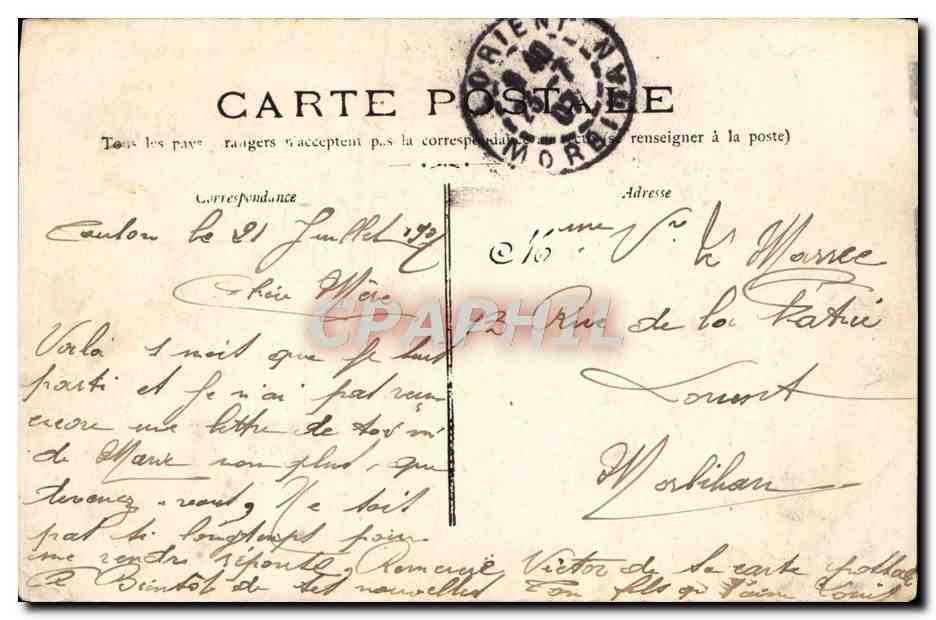 LORIENT
MORBIHAN
CARTE POSTALE
Tous les pays étrangers n'acceptent pas la correspondance au recto (se renseigner à la poste)
Correspondance
Adresse
Toulon le 21 Juillet 190
Chère Mère
Voilà 1 mois que Je suis
parti et Je n'ai pas reçu
encore une lettre de toi ni
de Marie non plus, que
devenez-vous, Ne soit
pas si longtemps pour
me rendre réponse, Remercie Victor de sa carte postale
A Bientôt de tes nouvelles Ton fils qui t'aime Louis
Mme Vve Le Marrec
12 Rue de la Patrie
Lorient
Morbihan
CPAPHIL